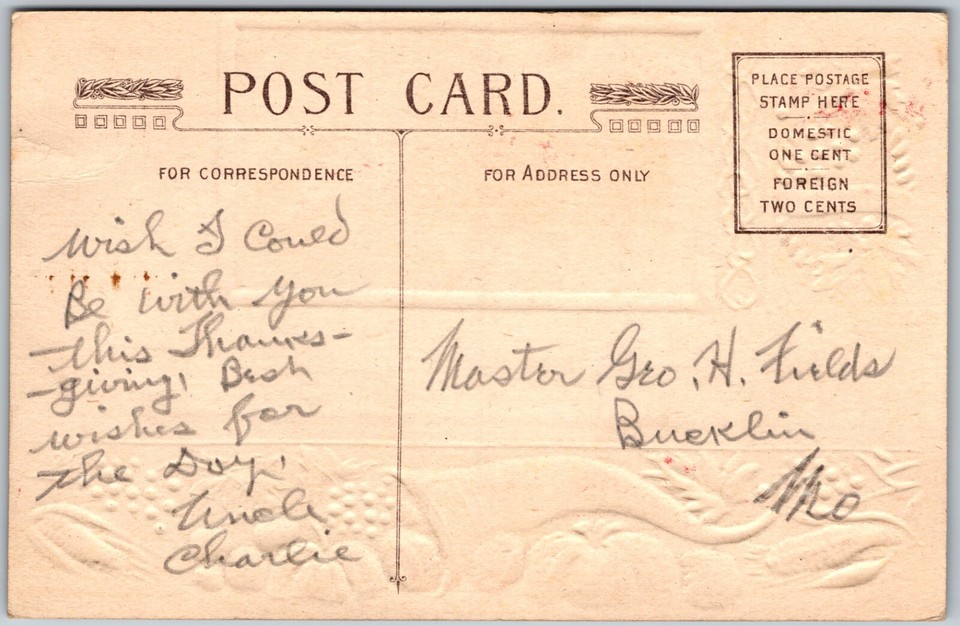 POST CARD.
PLACE POSTAGE
STAMP HERE
DOMESTIC
ONE CENT
FOREIGN
TWO CENTS
FOR CORRESPONDENCE
FOR ADDRESS ONLY
Wish I Could
Be with you
this Thanks-
-giving, Best
wishes for
the Day,
Uncle
Charlie
Master Geo. H. Fields
Bucklin
Mo